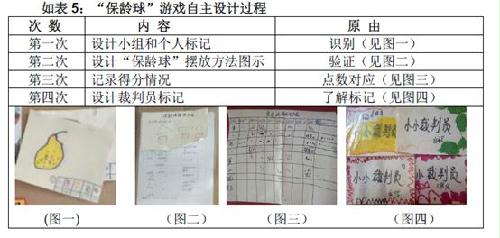 如表 5：“保龄球”游戏自主设计过程
次 数 内 容 原 由
第一次 设计小组和个人标记 识别（见图一）
第二次 设计“保龄球”摆放方法图示 验证（见图二）
第三次 记录得分情况 点数对应（见图三）
第四次 设计裁判员标记 了解标记（见图四）
小小裁判员
小小裁判员
小小裁判员
小小裁判员
(图一) (图二) (图三) (图四)